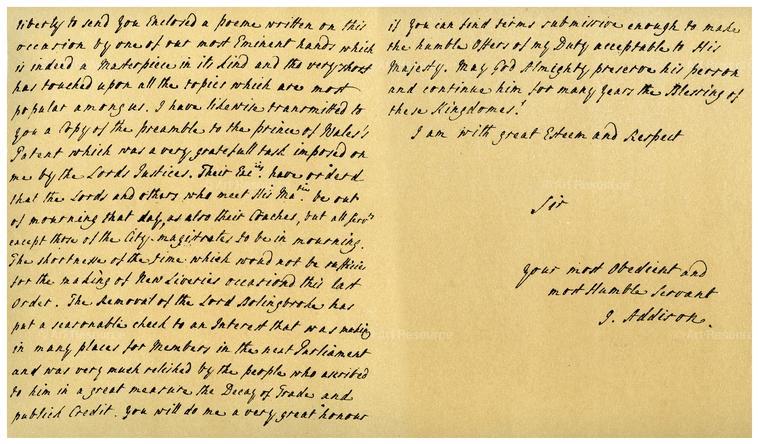 liberty to send you Enclosed a poeme written on this
occasion by one of our most Eminent hands which
is indeed a Masterpiece in its kind and tho very short
has touched upon all the topics which are most
popular among us. I have likewise transmitted to
you a Copy of the preamble to the prince of Wales's
Patent which was a very gratefull task imposed on
me by the Lords Justices. Their Exc:ies have orderd
that the Lords and others who meet His Ma:tie be out
of mourning that day, as also their Coaches, but all serv:ts
except those of the City-magistrates to be in mourning.
The shortness of the time which woud not be suffici
for the making of New Liveries occasiond this last
Order. The Removal of the Lord Bolingbroke has
put a seasonable check to an Interest that was making
in many places for Members in the next Parliament
and was very much relished by the people who ascribed
to him in a great measure the Decay of Trade and
publick Credit. You will do me a very great honour
if you can find terms submissive enough to make
the humble Offers of my Duty acceptable to His
Majesty. May God Almighty preserve his person
and continue him for many years the Blessing of
these Kingdomes!
I am with great Esteem and Respect
Sir
Your most Obedient and
most Humble Servant
J. Addison.
Art Resource